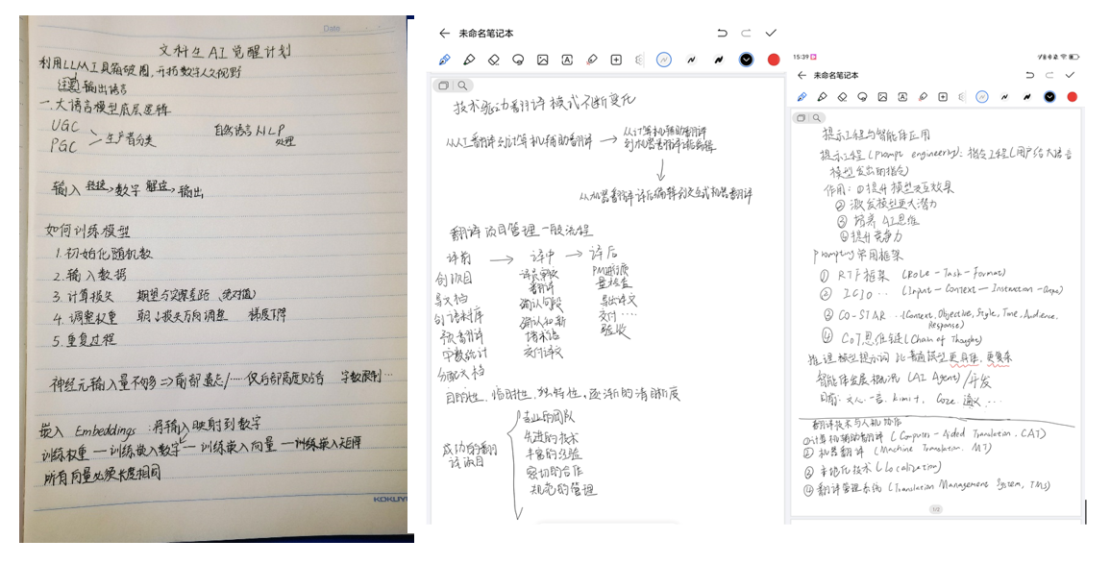 Date
文科生AI觉醒计划
利用LLM工具箱破圈,开拓数字人文视野
注意 输出语言
一.大语言模型底层逻辑
UGC
PGC
生产者分类
自然语言NLP
处理
输入 数字 解码 输出
如何训练模型
1.初始化随机数
2.输入数据
3.计算损失 期望与实际差距 (绝对值)
4.调整权重 损失方向调整 梯度下降
5.重复过程
神经元输入量不够 ⇒ 前部遗忘/… 仅后部高度贴合 字数限制…
嵌入 Embeddings:将输入映射到数字
训练权重—训练嵌入数字—训练嵌入向量—训练嵌入矩阵
所有向量必须长度相同
KOKUYO
未命名笔记本
技术驱动翻译模式不断变化
从人工翻译到计算机辅助翻译 → 从计算机辅助翻译
到机器翻译译后编辑
从机器翻译译后编辑到交互式机器翻译
翻译项目管理一般流程
译前 → 译中 → 译后
创项目
导文档
创语料库
预翻译
字数统计
分配文档
译员审校
翻译
确认句段
确认和新
增术语
交付译文
PM进行质
量检查
导出译文
交付…
验收
目的性、临时性、独特性、逐渐的清晰度
成功的翻
译项目
专业的团队
先进的技术
丰富的经验
密切的合作
规范的管理
15:39
未命名笔记本
提示工程与智能体应用
提示工程(Prompt engineering):指令工程(用户给大语言
模型发出的指令)
作用:①提升模型交互效果
②激发模型更大潜力
③培养AI思维
④提升竞争力
Prompting常用框架
①RTF框架 (Role-Task-Format)
②ICIO… (Input-Context-Instruction-Output)
③CO-STAR (Context, Objective, Style, Tone, Audience,
Response)
④CoT思维链(Chain of Thought)
推理模型提示词 比普通模型更具体,更简单
智能体发展概况(AI Agent)/开发
目前:文心一言、kimi+、Coze…
翻译技术与人机协作
①计算机辅助翻译(Computer-Aided Translation, CAT)
②机器翻译(Machine Translation, MT)
③本地化技术(Localization)
④翻译管理系统(Translation Management System, TMS)